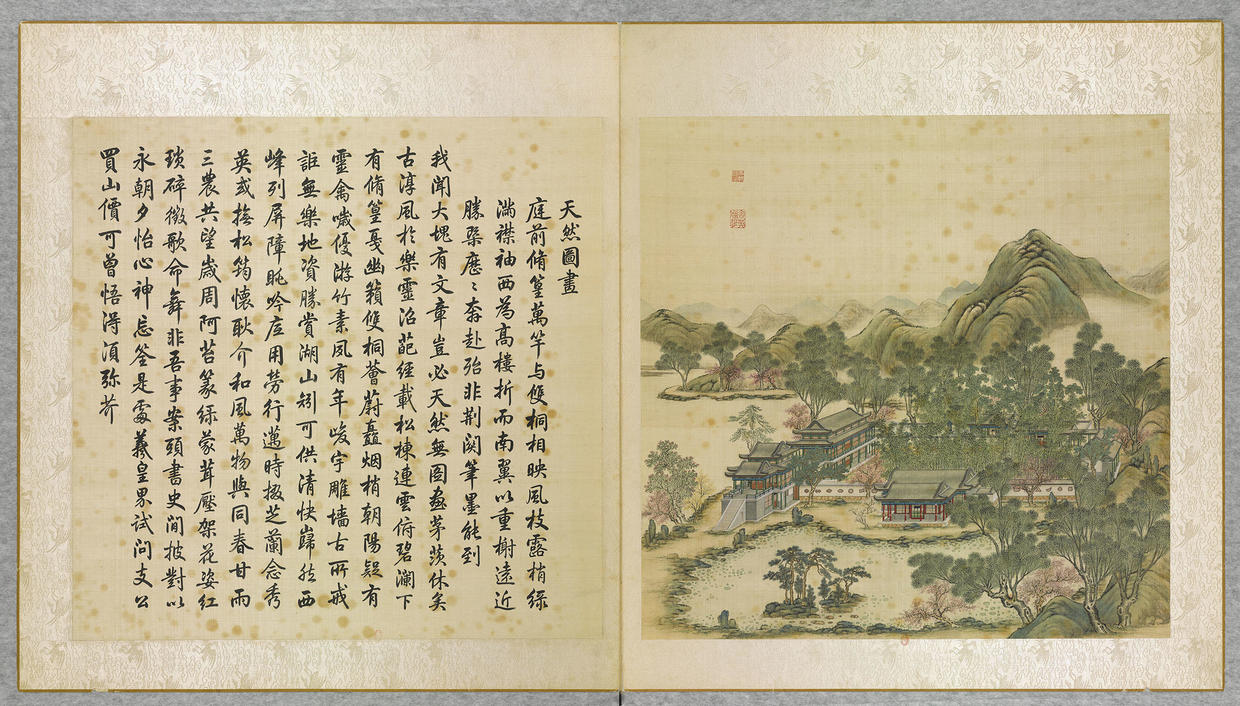 天然圖畫
庭前脩篁萬竿与雙桐相映風枝露梢綠
滿襟袖西為高樓折而南翼以重榭遠近
勝槩歷々奔赴殆非荆関筆墨能到
我聞大塊有文章豈必天然無圖畫茅茨休矣
古淳風於樂靈沼葩經載松棟連雲俯碧瀾下
有脩篁戞幽籟雙桐薈蔚矗烟梢朝陽疑有
靈禽噦優游竹素夙有年峻宇雕墻古所戒
詎無樂地資勝賞湖山矧可供清快巋然西
峰列屏障眺吟底用勞行邁時掇芝蘭念秀
英或撫松筠懷耿介和風萬物與同春甘雨
三農共望歲周阿苔篆綠蒙茸壓架花姿紅
瑣碎徵歌命舞非吾事案頭書史閒披對以
永朝夕怡心神忘筌是處羲皇界試問支公
買山價可曾悟得須弥芥